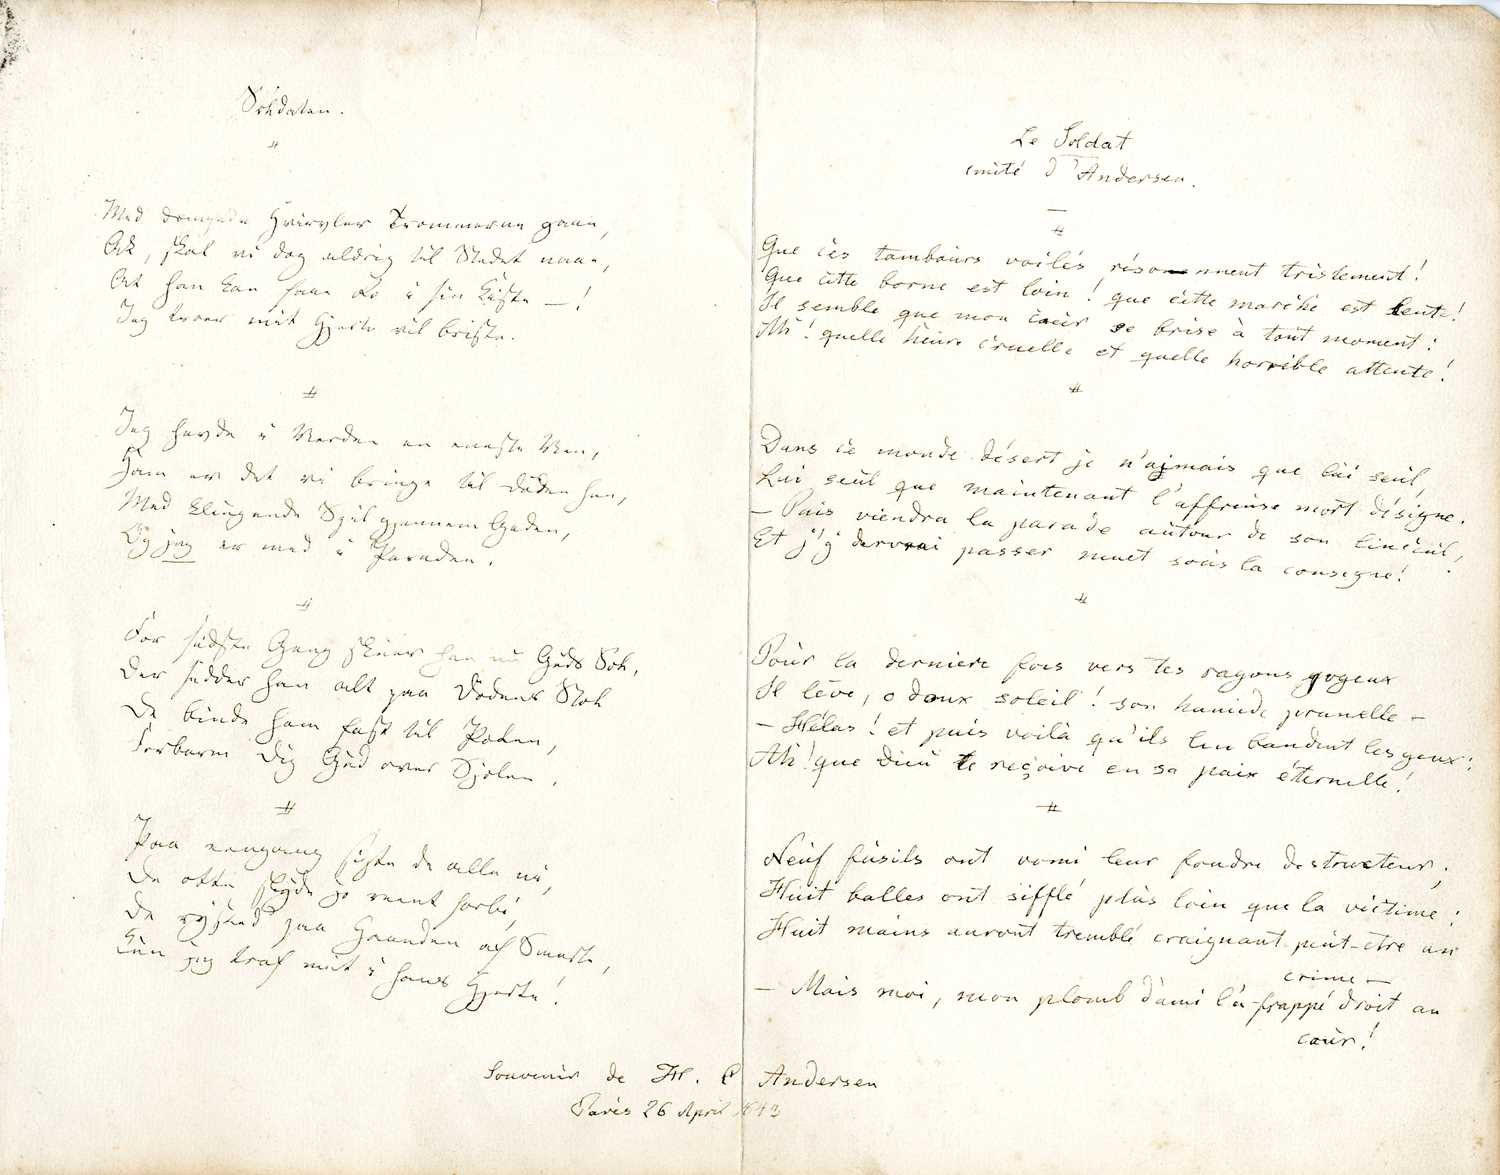 Soldaten.
Med dæmpede Hvirvler Trommerne gaae,
Ak, skal vi dog aldrig til Stedet naae,
At han kan faae Ro i sin Kiste — !
Jeg troer mit Hjerte vil briste.
Jeg havde i Verden en eneste Ven,
Ham er det vi bringe til Døden hen,
Med klingende Spil gjennem Gaden,
Og jeg er med i Paraden.
For sidste Gang skuer han nu Guds Sol,
Der sidder han alt paa Dødens Stol
De binde ham fast til Pælen,
Forbarm Dig Gud over Sjælen.
Paa eengang sigte de alle ni,
De otte skyde jo reent forbi,
De rysted paa Haanden af Smerte,
Kun jeg traf midt i hans Hjerte!
Le Soldat
imité d'Andersen.
Que ces tambours voilés résonnent tristement!
Que cette borne est loin! que cette marche est lente!
Il semble que mon cœur se brise à tout moment:
Ah! quelle heure cruelle et quelle horrible attente!
Dans ce monde désert je n'aimais que lui seul,
Lui seul que maintenant l'affreuse mort désigne.
— Puis viendra la parade autour de son linceul,
Et j'y devrai passer muet sous la consigne!
Pour la derniere fois vers tes rayons joyeux
Il lève, o doux soleil! son humide prunelle —
— Hélas! et puis voilà qu'ils lui bandent les yeux:
Ah! que Dieu le reçoive en sa paix éternelle!
Neuf fusils ont vomi leur foudre destructeur;
Huit balles ont sifflé plus loin que la victime:
Huit mains auront tremblé craignant peut-etre un
crime —
— Mais moi, mon plomb d'ami l'a frappé droit au
cœur!
Souvenir de H. C Andersen
Paris 26 April 1843